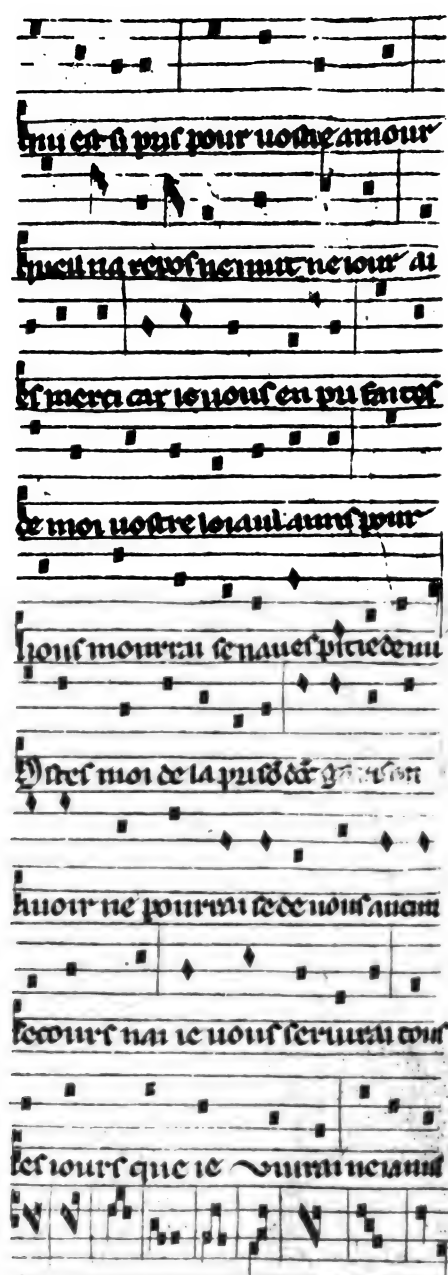 qui est si pris pour uostre amour
queil na repos ne nuit ne iour ai
es merci car ie uous en pri faites
de moi uostre loiaul amis pour
uous mourrai se naues pitie de mi
Ostes moi de la prisō dōt garison
auoir ne pourrai se de uous aucun
secours nai ie uous seruirai tous
les iours que ie uiurai ne iamais